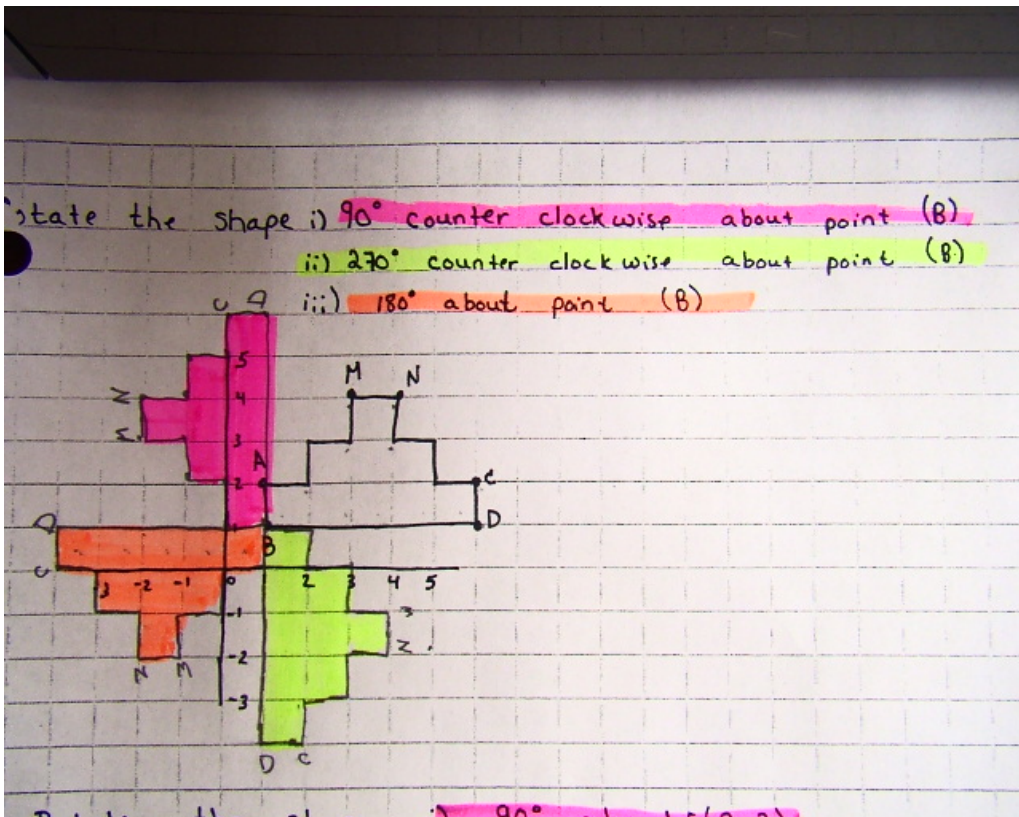 tate the shape i) 90° counter clockwise about point (B)
ii) 270° counter clockwise about point (B)
iii) 180° about point (B)
C D
5
N 4 M N
M 3
A 2 C
1 D
D B
C -3 -2 -1 0 2 3 4 5
-1 M
N M -2 N
-3
D C
i) 90°